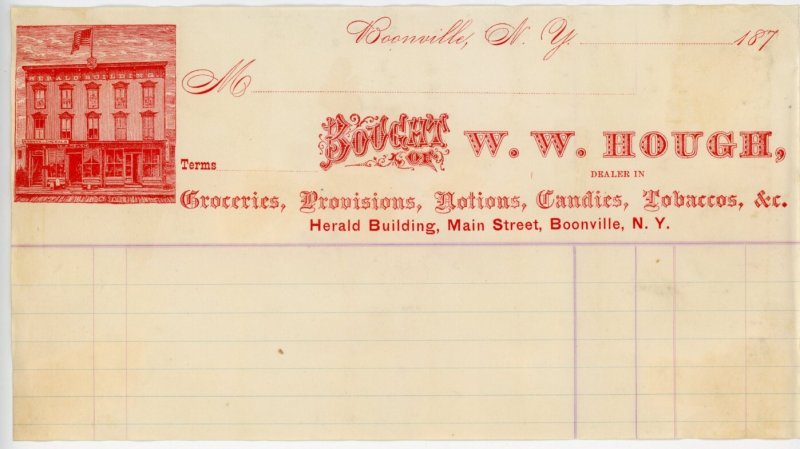 HERALD BUILDING
Boonville, N. Y. 187
M
BOUGHT OF W. W. HOUGH,
Terms
DEALER IN
Groceries, Provisions, Notions, Candies, Tobaccos, &c.
Herald Building, Main Street, Boonville, N. Y.